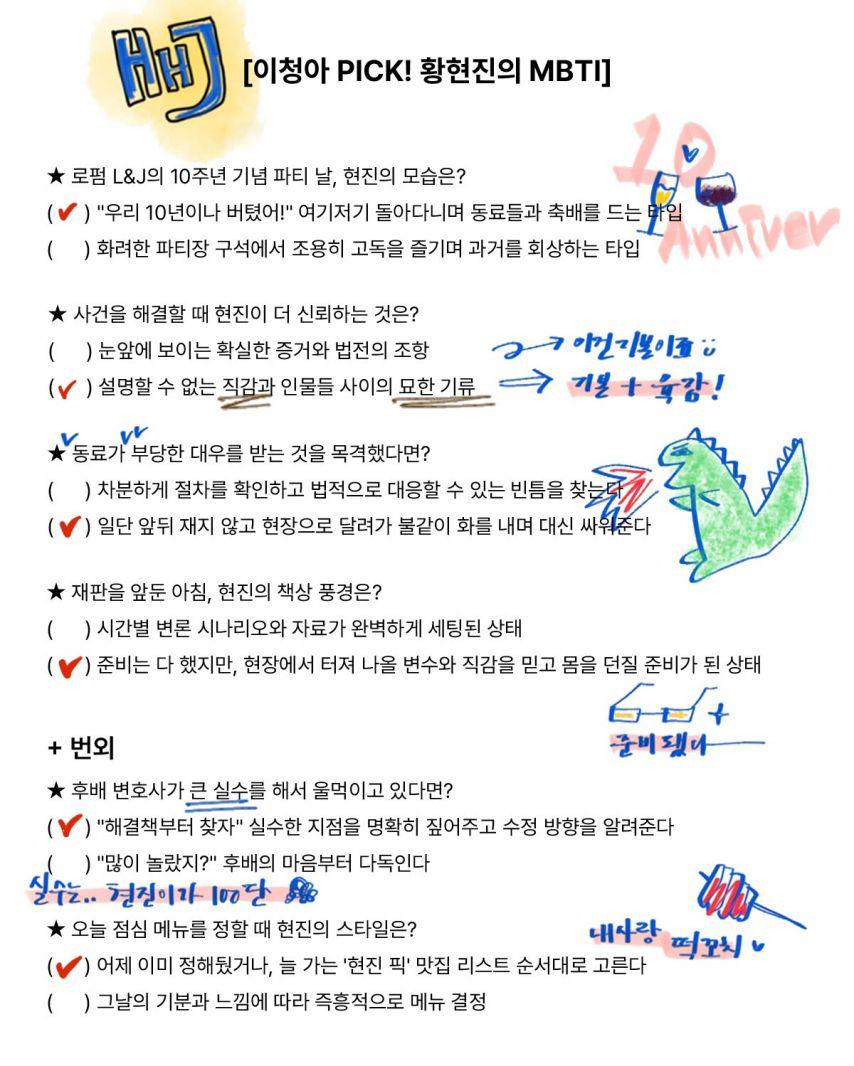 HHJ
[이청아 PICK! 황현진의 MBTI]
10
Anniver
★ 로펌 L&J의 10주년 기념 파티 날, 현진의 모습은?
(✔) "우리 10년이나 버텼어!" 여기저기 돌아다니며 동료들과 축배를 드는 타입
( ) 화려한 파티장 구석에서 조용히 고독을 즐기며 과거를 회상하는 타입
★ 사건을 해결할 때 현진이 더 신뢰하는 것은?
( ) 눈앞에 보이는 확실한 증거와 법전의 조항
이건 기본이죠
(✔) 설명할 수 없는 직감과 인물들 사이의 묘한 기류
기본 + 육감!
★ 동료가 부당한 대우를 받는 것을 목격했다면?
( ) 차분하게 절차를 확인하고 법적으로 대응할 수 있는 빈틈을 찾는다
(✔) 일단 앞뒤 재지 않고 현장으로 달려가 불같이 화를 내며 대신 싸워준다
★ 재판을 앞둔 아침, 현진의 책상 풍경은?
( ) 시간별 변론 시나리오와 자료가 완벽하게 세팅된 상태
(✔) 준비는 다 했지만, 현장에서 터져 나올 변수와 직감을 믿고 몸을 던질 준비가 된 상태
준비됐다
+ 번외
★ 후배 변호사가 큰 실수를 해서 울먹이고 있다면?
(✔) "해결책부터 찾자" 실수한 지점을 명확히 짚어주고 수정 방향을 알려준다
( ) "많이 놀랐지?" 후배의 마음부터 다독인다
실수는.. 현진이가 100단
★ 오늘 점심 메뉴를 정할 때 현진의 스타일은?
내사랑 떡꼬치
(✔) 어제 이미 정해뒀거나, 늘 가는 '현진 픽' 맛집 리스트 순서대로 고른다
( ) 그날의 기분과 느낌에 따라 즉흥적으로 메뉴 결정